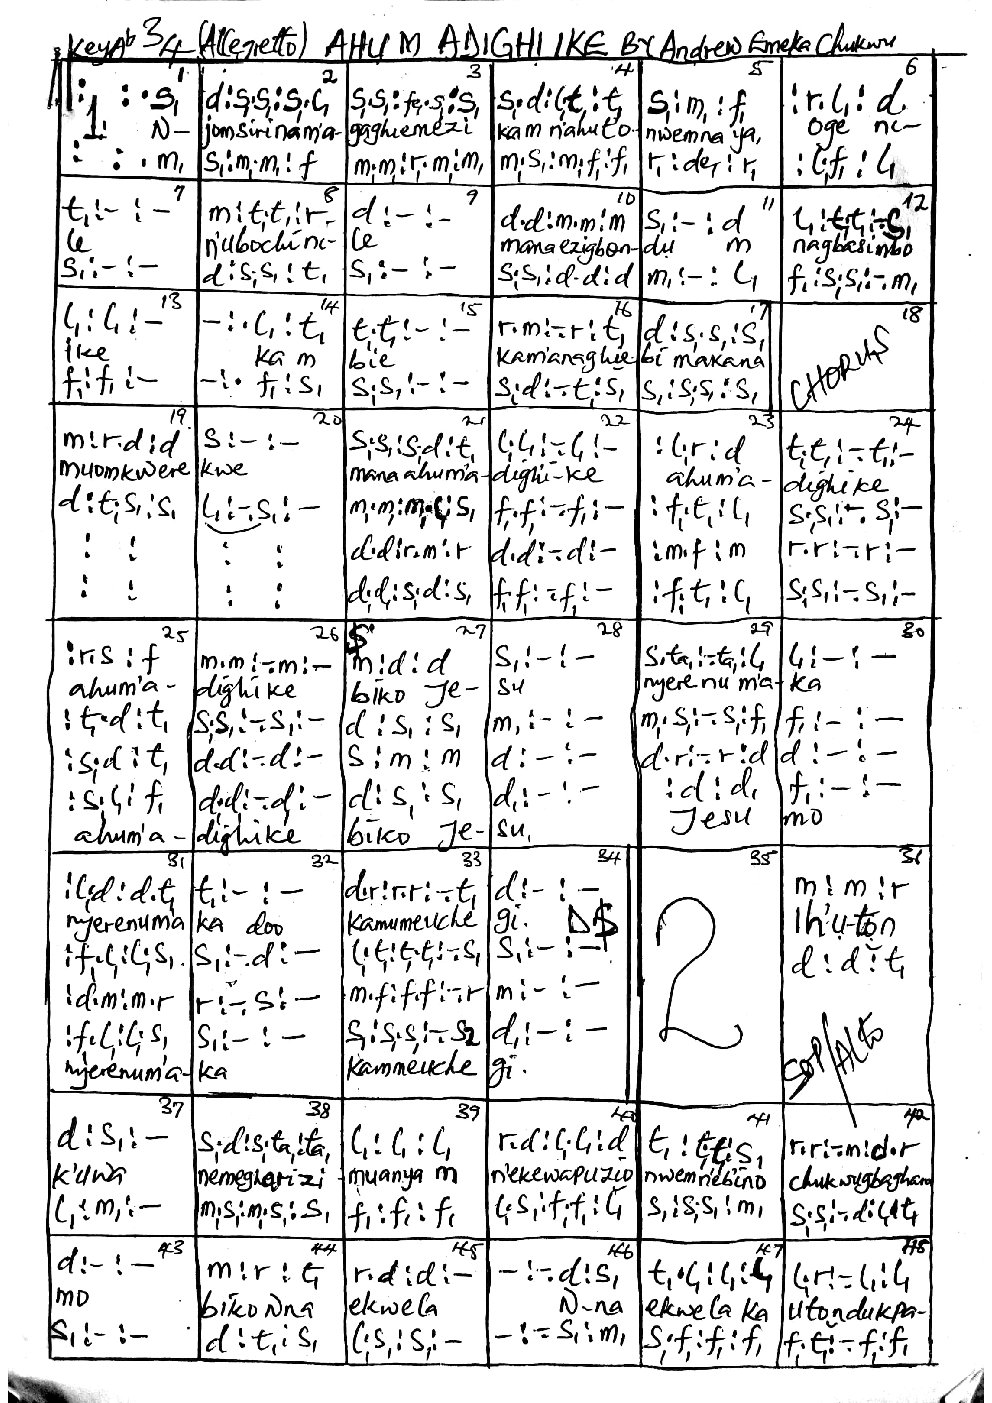 Key Ab 3/4 (Allegretto) AHUM ADIGHI IKE BY Andrew Emeka Chukwu
1 2 3 4 5 6
1. : : . s, d:s,s,:s,l, s,s,:fe,s,:s, s,d:l,t,:t, s,:m,:f, :r.l,:d
N- jomsirinam'a- gaghiemezi kam n'ahuto- nwemna ya, oge ni-
: : . m, s,:m,m,:f, m,m,:r,m,:m, m,s,:m,f,:f, r,:de,:r, :l,f,:l,
7 8 9 10 11 12
t,:-:- m:t,t,:r- d:-:- d.d:m.m:m s,:-:d l,:t,t,:-s,
le n'ubochi ni- le mana ezigbon- du m nagbasimbo
s,:-:- d:s,s,:t, s,:-:- s,s,:d.d:d m,:-:l, f,:s,s,:-m,
13 14 15 16 17 18
l,:l,:- -:.l,:t, t,t,:-:- r.m:-r:t, d:s,s,:s, CHORUS
ike ka m bie kam'anaghie bi makana
f,:f,:- -:.f,:s, s,s,:-:- s,d:-t,:s, s,:s,s,:s,
19 20 21 22 23 24
m:r.d:d s:-:- s,s,:s,d:t, l,l,:-l,:- :l,r:d t,t,:-t,:-
muomkwere kwe mana ahum'a- dighi-ke ahum'a- dighike
d:t,s,:s, l,:-s,:- m,m,:m,l,:s, f,f,:-f,:- :f,t,:l, s,s,:-s,:-
: : : : d.d:r.m:r d.d:-d:- :m.f:m r.r:-r:-
: : : : d,d,:s,d,:s, f,f,:-f,:- :f,t,:l, s,s,:-s,:-
25 26 27 28 29 30
:r.s:f m.m:-m:- m:d:d s,:-:- s,ta,:-ta,:l, l,:-:-
ahum'a- dighike biko Je- su nyerenu m'a- ka
:t,d:t, s,s,:-s,:- d:s,:s, m,:-:- m,s,:-s,:f, f,:-:-
:s,d:t, d.d:-d:- s:m:m d:-:- d.r:-r:d d:-:-
:s,l,:f, d.d:-d:- d:s,:s, d,:-:- :d:d, f,:-:-
ahum'a- dighike biko Je- su, Jesu mo
31 32 33 34 35 36
:l,d:d.t, t,:-:- d.r:r.r:-t, d:-:- 2 m:m:r
nyerenuma ka doo kamumeuche gi. D$ Ih'u-ton
:f,l,:l,s, s,:-d:- l,t,:t,t,:-s, s,:-:- d:d:t,
:d.m:m.r r:-s:- m.f:f.f:-r m:-:-
:f,l,:l,s, s,:-:- s,:s,s,:-s2 d,:-:- SOP/ALTO
nyerenum'a- ka kammeuche gi.
37 38 39 40 41 42
d:s,:- s,d:s,ta,:ta, l,:l,:l, r.d:l,l,:d t,:t,t,:s, r.r:-m:d.r
k'uwa nemegharizi muanya m n'ekewapuzio nwem'nebino chukwugbaghara
l,:m,:- m,s,:m,s,:s, f,:f,:f, l,s,:f,f,:l, s,:s,s,:m, s,s,:-d:l,t,
43 44 45 46 47 48
d:-:- m:r:t, r.d:d:- -:-d:s, t,.l,:l,:l, l,r:-l,:l,
mo biko Nna ekwela N-na ekwela ka utondukpa-
s,:-:- d:t,:s, l,s,:s,:- -:-s,:m, s,f,:f,:f, f,t,:-f,:f,